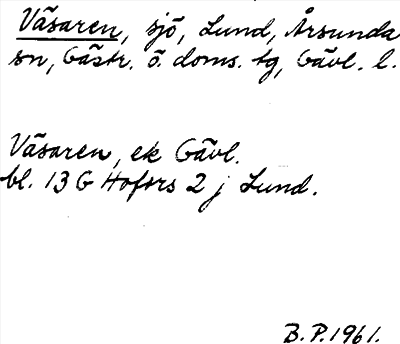 Väsaren, sjö, Lund, Årsunda
sn, Gästr. ö. doms. tg, Gävl. l.
Väsaren, ek Gävl.
bl. 13 G Hofors 2 j Lund.
B.P. 1961.